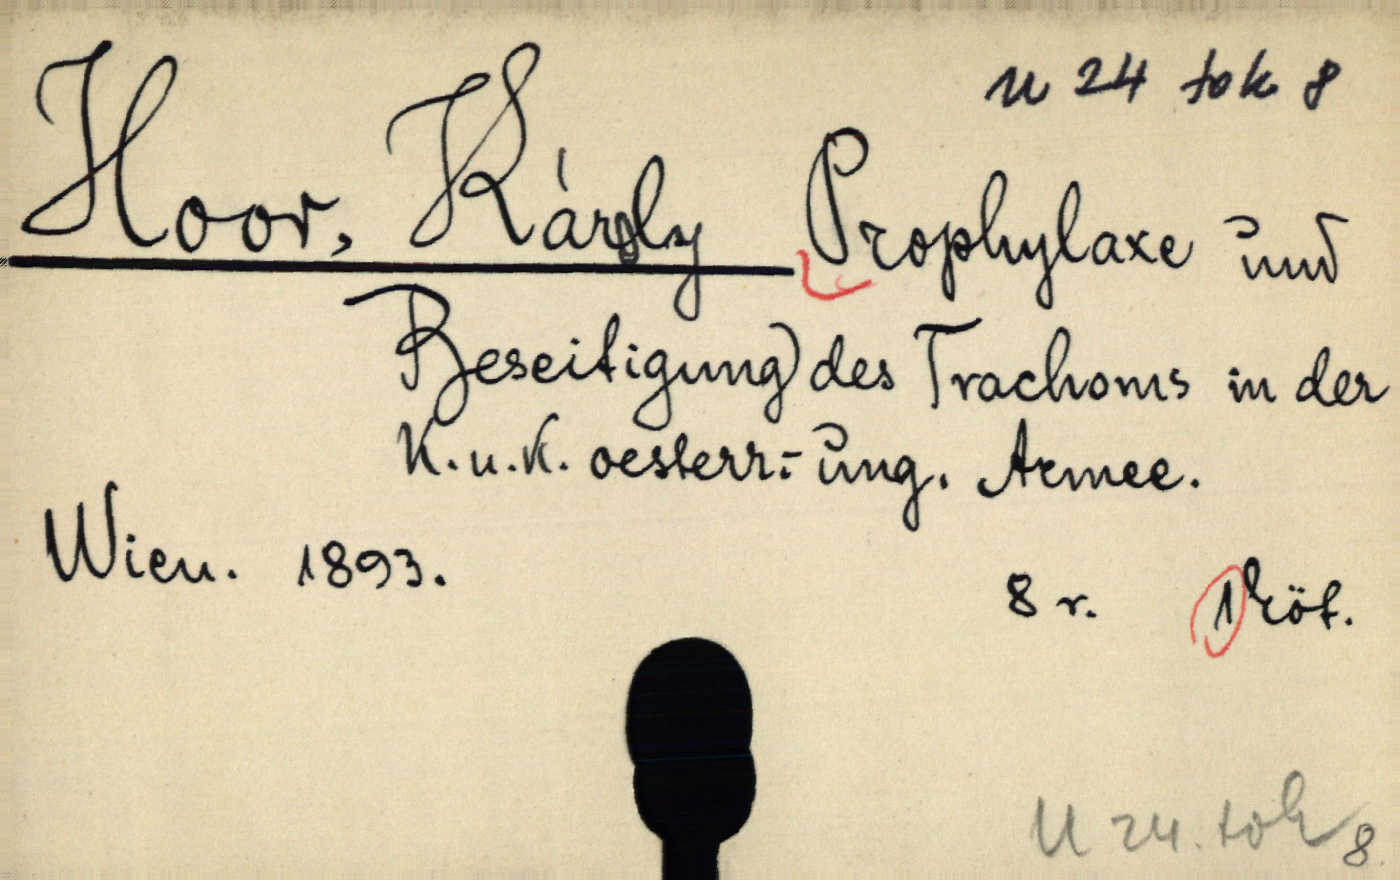 U 24 tok 8
Hoor, Károly Prophylaxe und
Beseitigung des Trachoms in der
K.u.K. oesterr.- ung. Armee.
Wien. 1893.
8 r. 1 köt.
U 24. tok 8.